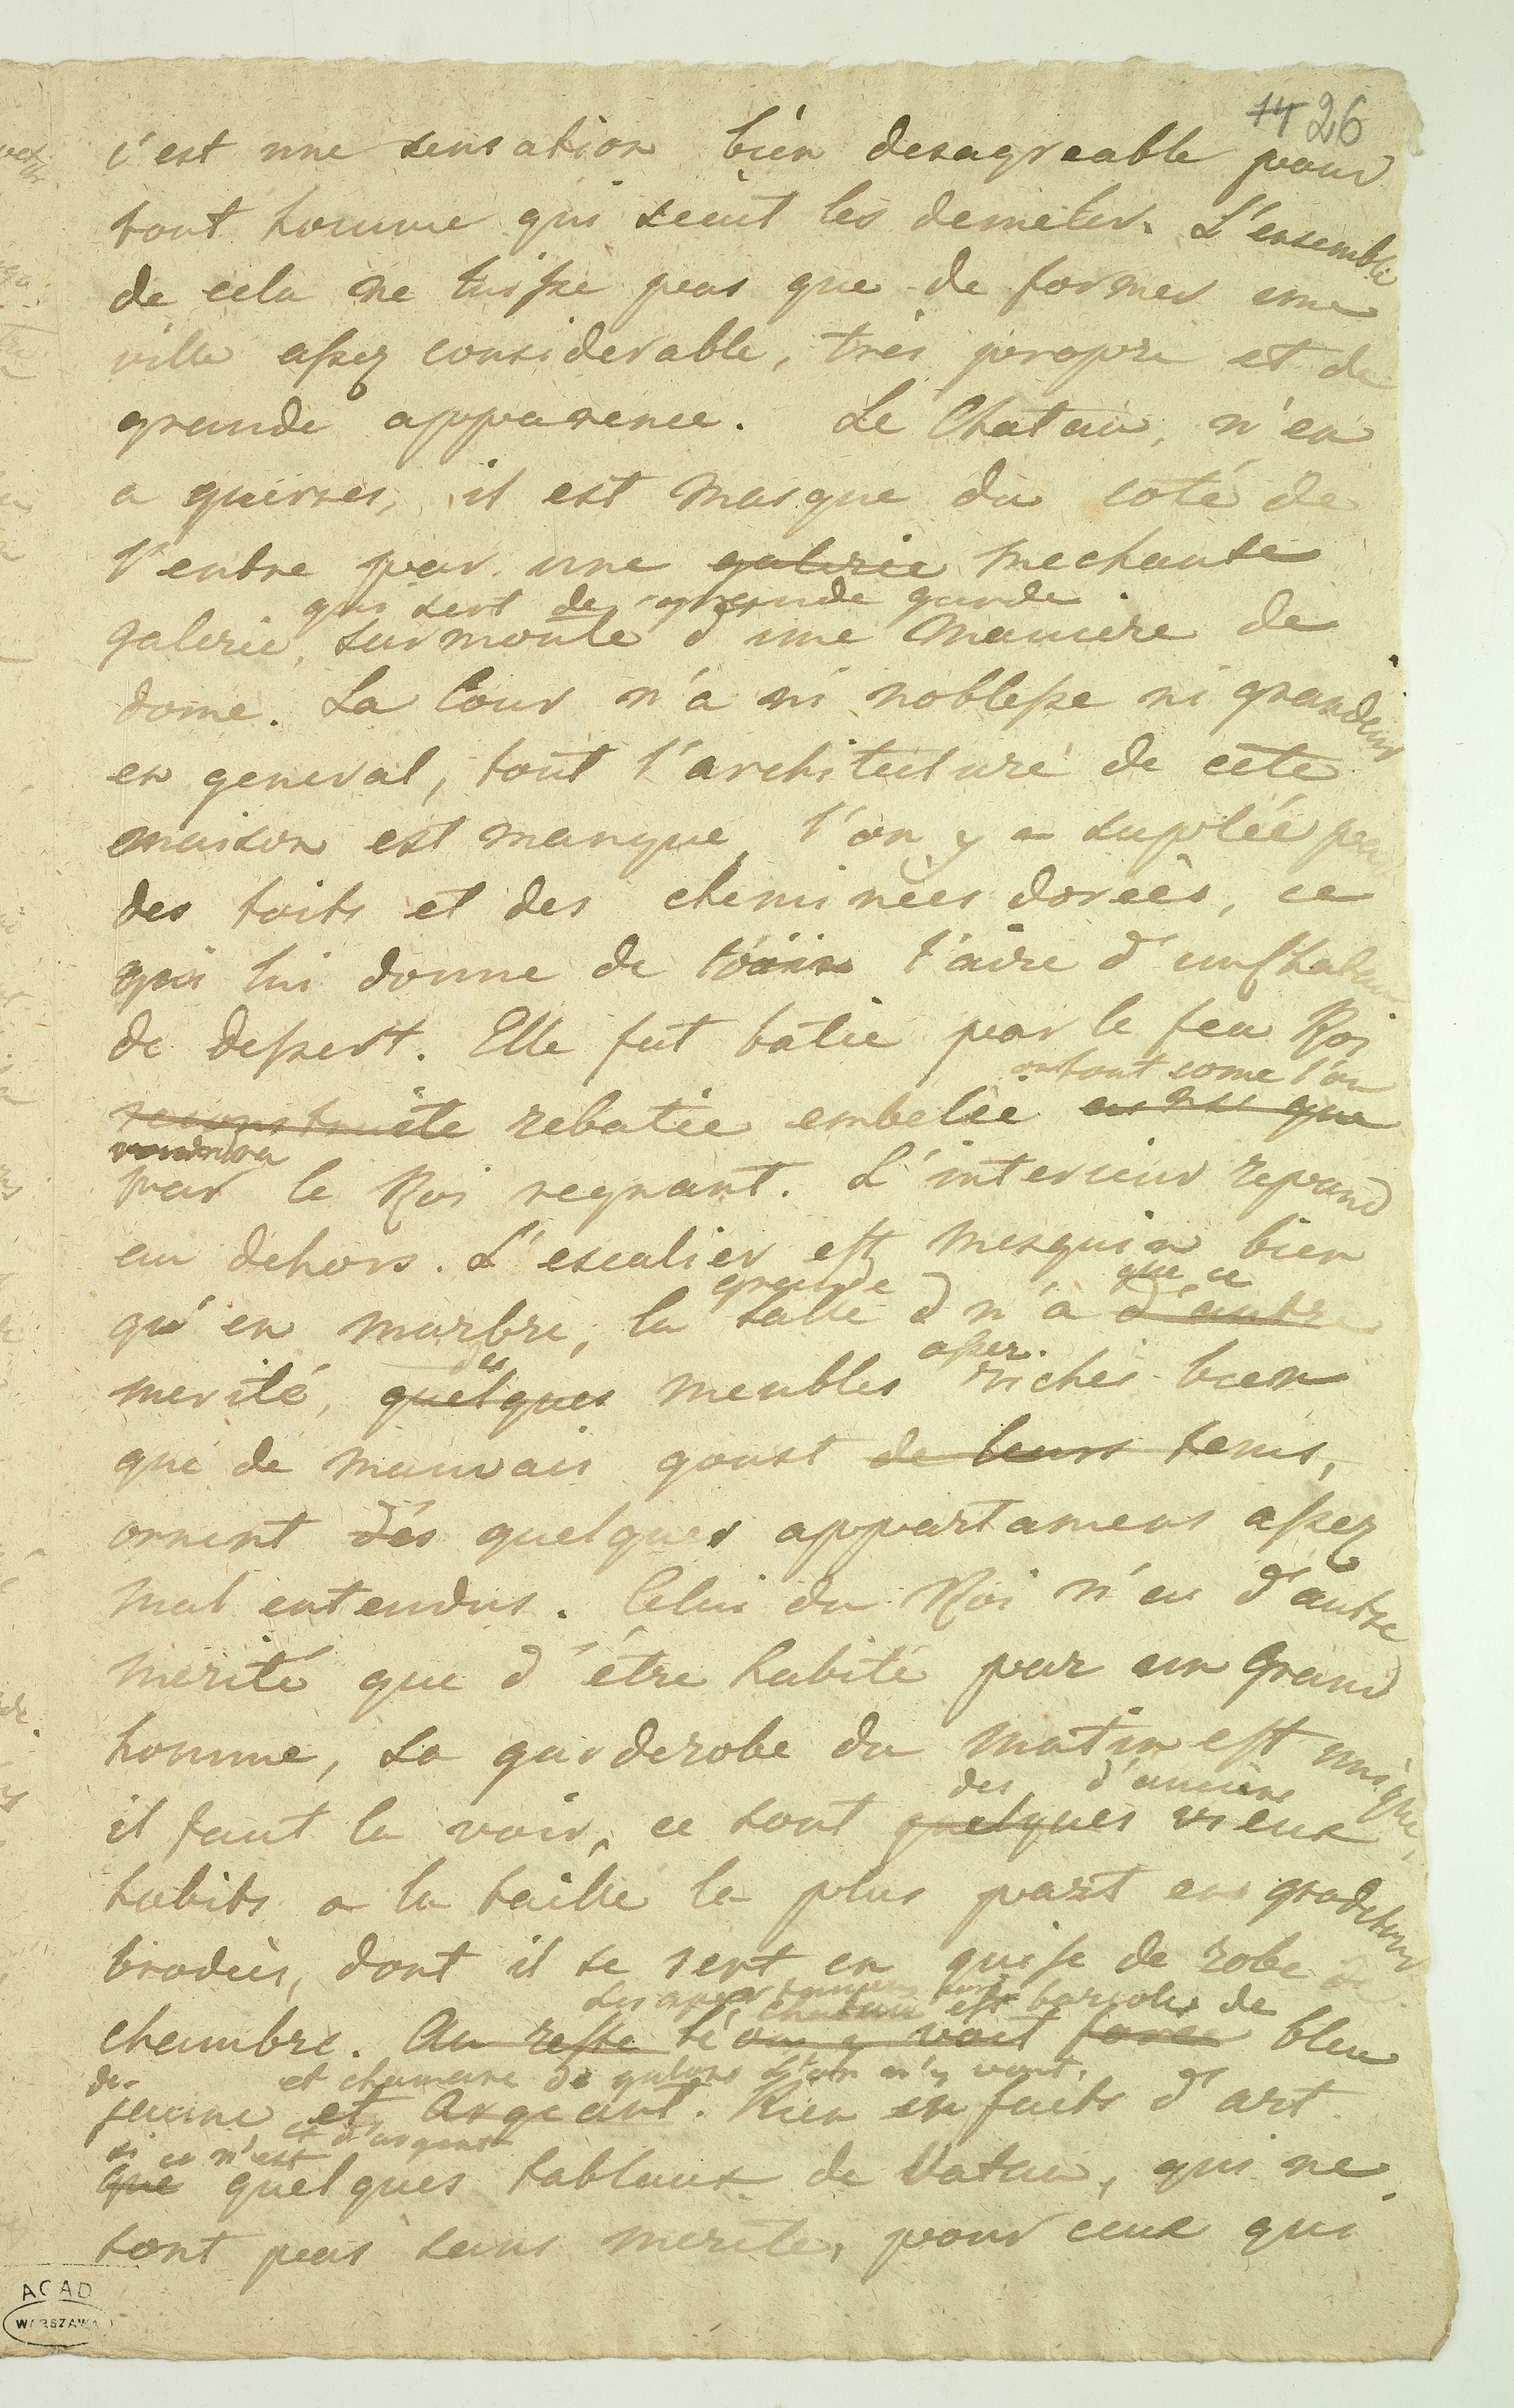 14 26
c'est une sensation bien desagreable pour
tout homme qui scait les demeler. L'ensemble
de cela ne laisse pas que de former une
ville assez considerable, très propre et de
grande apparence. Le Chatau, n'en
a guerres, il est masque du coté de
l'entre par une galerie mechante
qui sert de grande garde.
galerie, surmonte d'une maniere de
dome. La Cour n'a ni noblesse ni grandeur
en general, tout l'architecture de cete
maison est manque, l'on y a suplée par
des toits et des cheminées dorées, ce
qui lui donne de loin l'aire d'un Chatau
de dessert. Elle fut batie par le feu Roi
ou tout come l'on
reconstruite rebatie embelie ainsi que
voudra
par le Roi regnant. L'interieur repond
au dehors. L'escalier est mesquin bien
grande que ce
qu'en marbre, la salle d n'a d'autre
des assez
merité, quelques meubles riches bien
que de mauvais goust de leurs tems,
ornent dés quelques appartamens assez
mal entendus. Celui du Roi n'en d'autre
merité que d'être habité par un Grand
homme, sa garderobe du matin est unique,
des d'anciens
il faut la voir, ce sont quelques vieux
habits a la taille la plus part en grodetour
brodées, dont il se sert en guise de robe de
Les apartemens
chambre. Au reste voit bleu
de et chamare de galons l'on n'y voit,
jaune et Argeant. Rien en faits d'art
si ce n'est et d'argent
que quelques tablaux de Vatau, qui ne
sont pas sans merite, pour ceux qui
ACAD
WARSZAWA